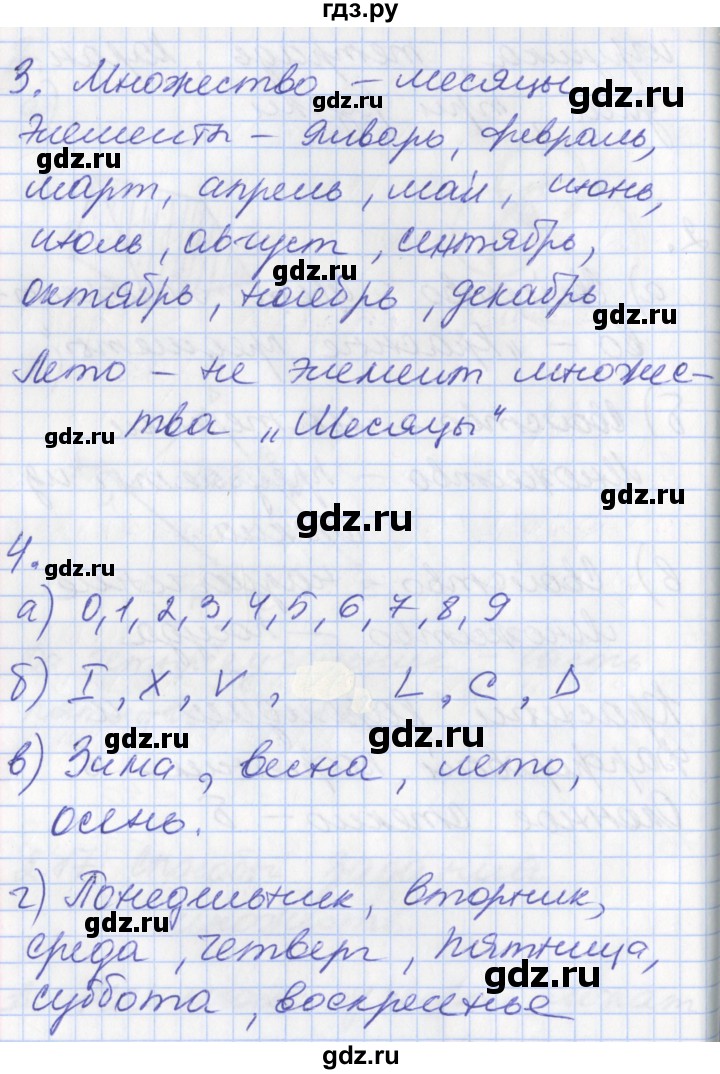 гдз.ру
3. Множество – месяцы
gdz.ru
gdz.ru
Элементы – Январь, февраль,
gdz.ru
март, апрель, май, июнь,
gdz.ru
июль, август, сентябрь,
gdz.ru
октябрь, ноябрь, декабрь
gdz.ru
Лето – не элемент множес-
тва „Месяцы“
gdz.ru
gdz.ru
gdz.ru
4.
gdz.ru
а) 0, 1, 2, 3, 4, 5, 6, 7, 8, 9
gdz.ru
б) I, X, V, L, C, D
gdz.ru
gdz.ru
в) Зима, весна, лето,
осень.
г) Понедельник, вторник,
gdz.ru
среда, четверг, пятница,
gdz.ru
суббота, воскресенье
gdz.ru